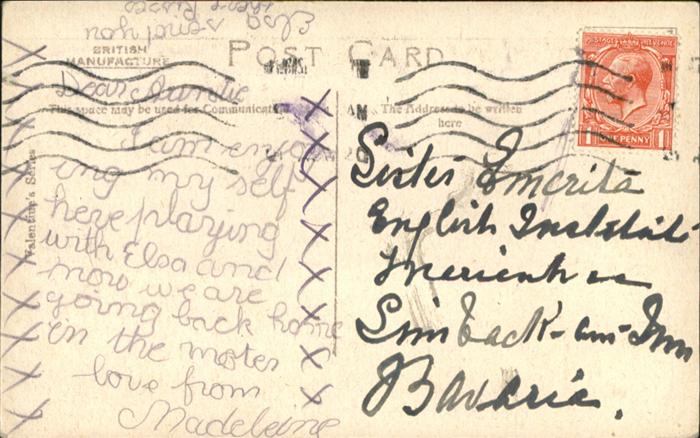 Elsa send you
BRITISH
MANUFACTURE
POST CARD
Dear Auntie
This space may be used for Communication
I am enjoy
ing my self
here playing
with Elsa and
now we are
going back home
in the motor
love from
Madeleine
Valentine's Series
The Address to be written
here
POSTAGE & INLAND REVENUE
1 ONE PENNY 1
Sister Emerita
English Institute
Marienhaus
Simback-am-Inn
Bavaria.